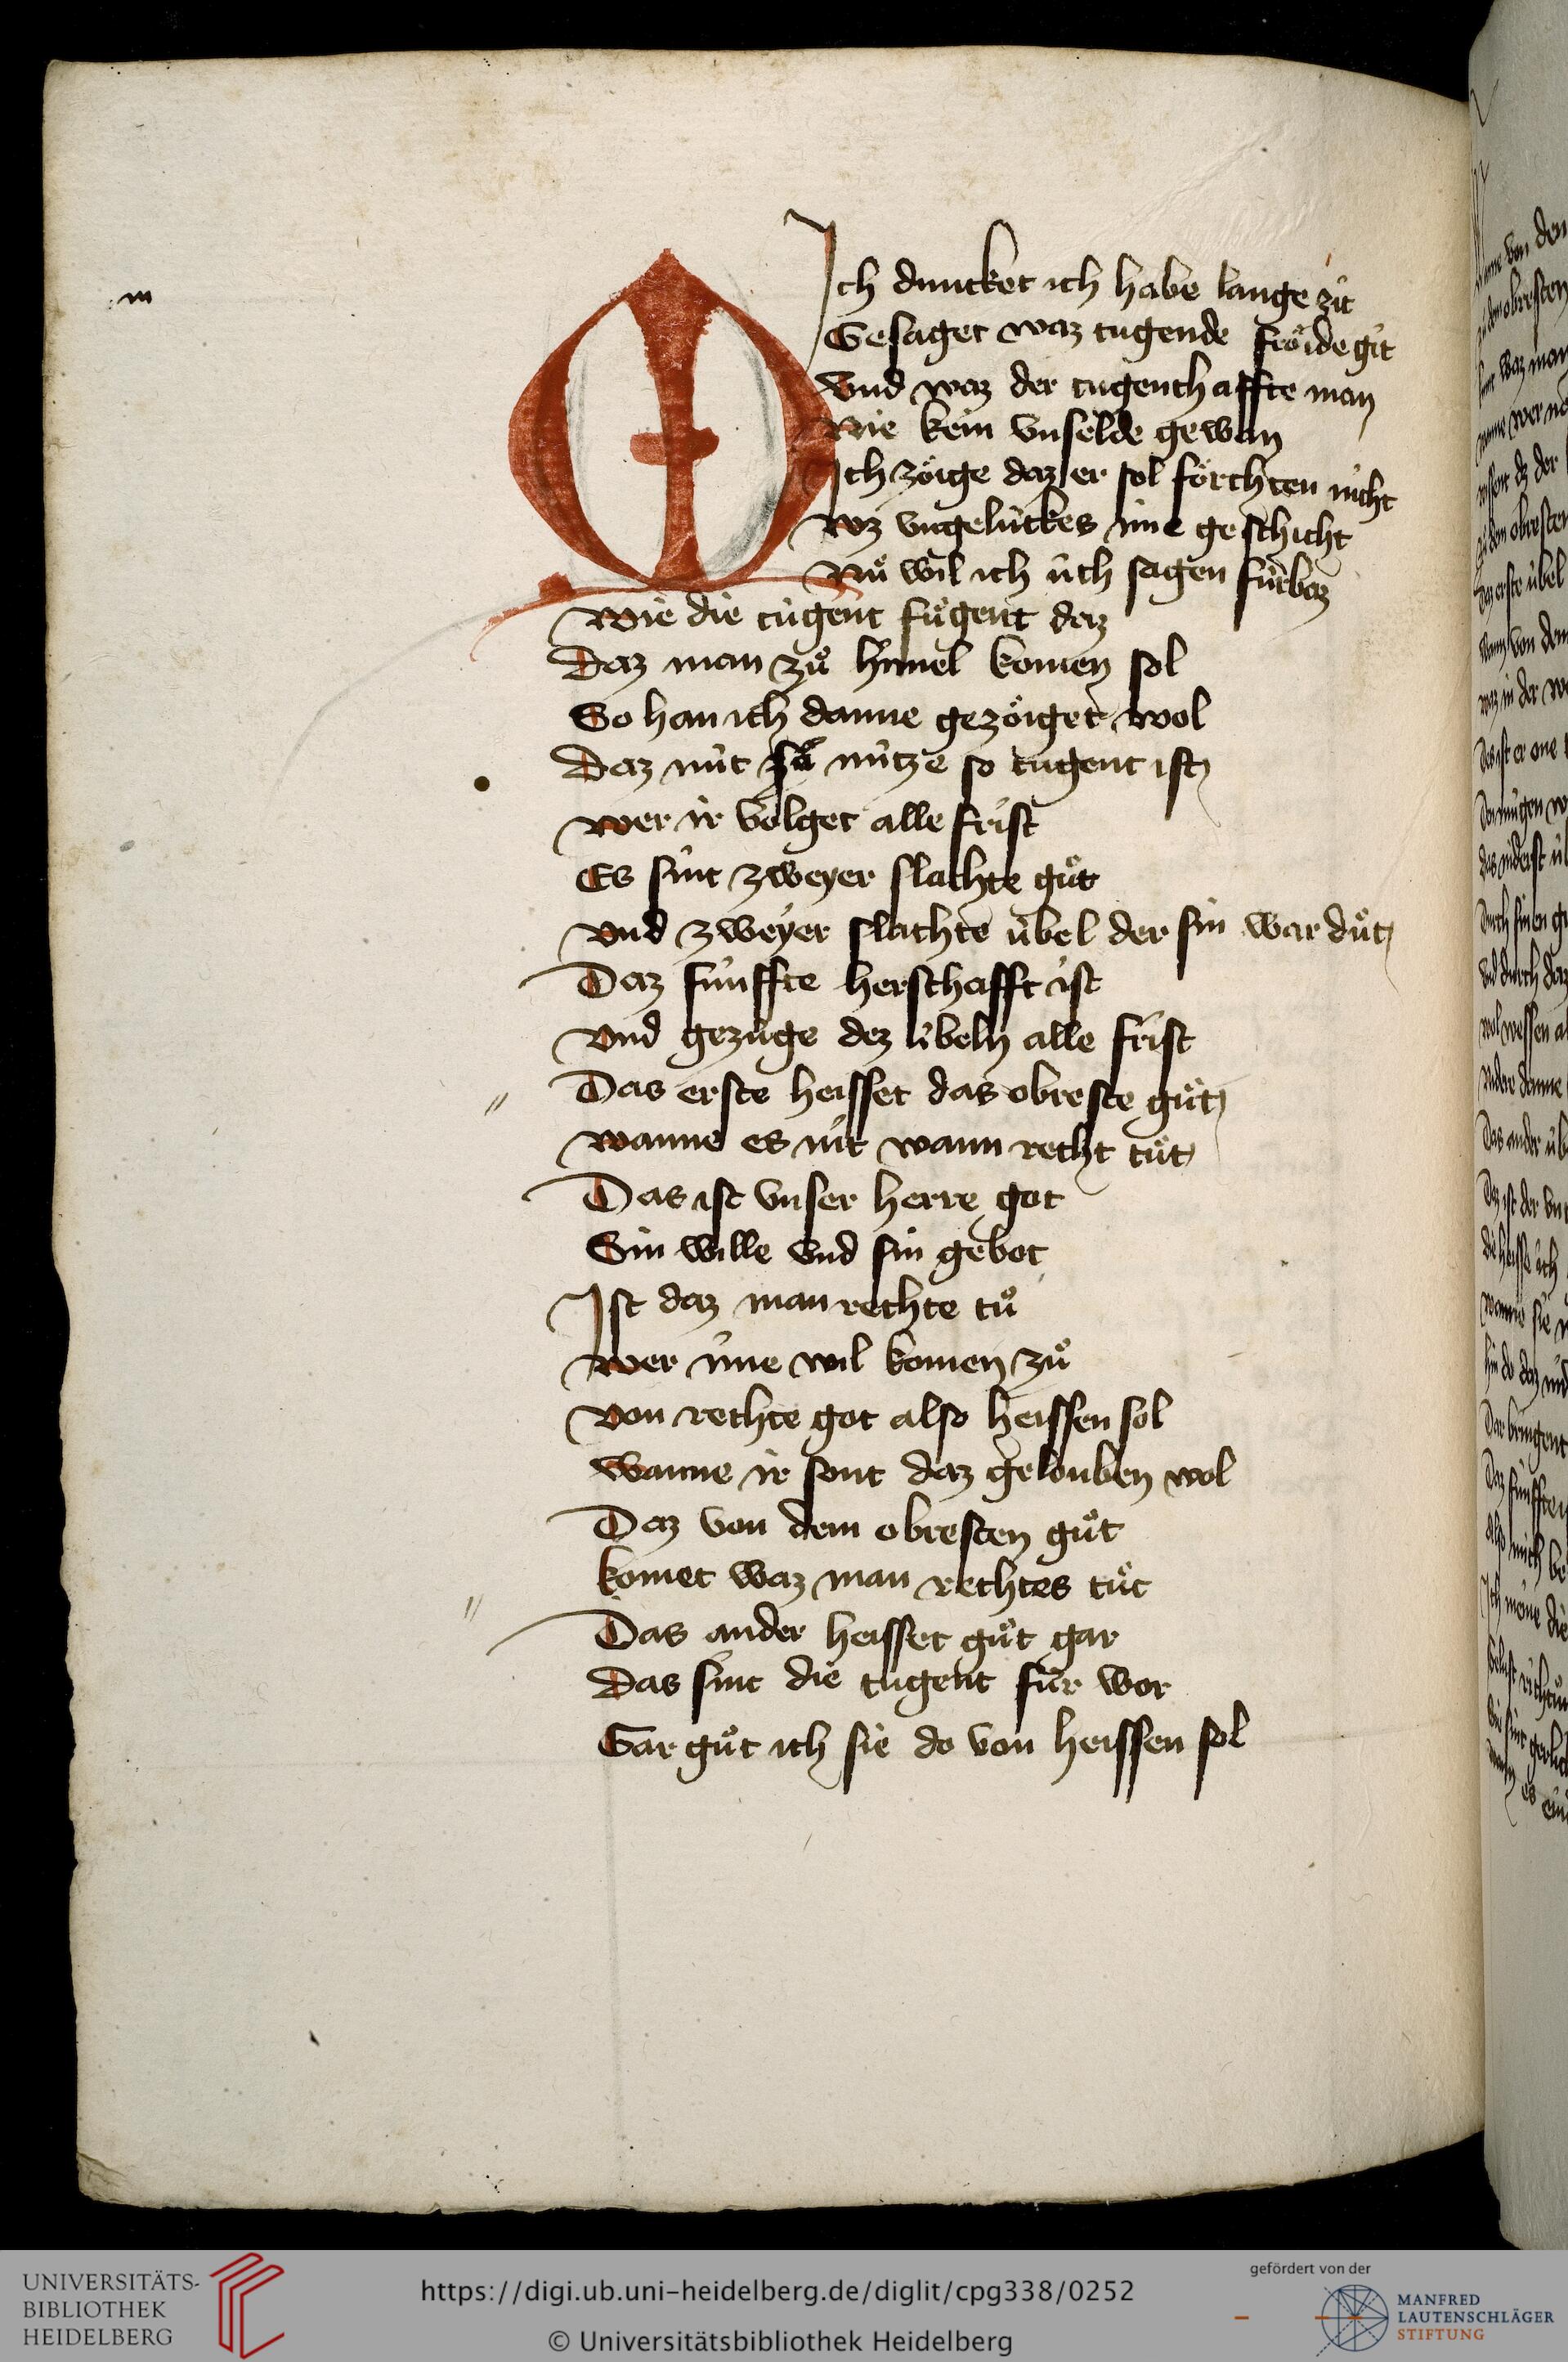 m
MIch duncket ich habe lange zit
Gesaget waz tugende froͤide git
Vnd waz der tugenthaffte man
Nie kein vnselde gewan
Ich zoͤige daz er sol foͤrchten nicht
Wz vngelúckes ime geschicht
Nuͦ wil ich úch sagen fúrbaz
Wie die tugent fuͤgent daz
Daz man zuͦ himel komen sol
So han ich danne gezoͤiget wol
Daz nút so nútze so tugent ist
Wer ir volget alle frist
Es sint zweyer slachte guͦt
Vnd zweyer slachte úbel der sin war duͦt
Daz fúnffte herschafft ist
Vnd gezúge dez úbeln alle frist
Das erste heisset das obreste guͦt
Wanne es nit wann recht tuͦt
Das ist vnser herre got
Sin wille vnd sin gebot
Ist daz man rechte tuͦ
Wer ime wil komen zuͦ
Von rechte got also heissen sol
Wanne ir sont daz gelouben wol
Daz von dem obresten guͦt
komet waz man rechtes tuͦt
Das ander heisset guͦt gar
Das sint die tugent fúr wor
Gar guͦt ich sie do von heissen sol
UNIVERSITÄTS-
BIBLIOTHEK
HEIDELBERG
https://digi.ub.uni-heidelberg.de/diglit/cpg338/0252
© Universitätsbibliothek Heidelberg
gefördert von der
MANFRED
LAUTENSCHLÄGER
STIFTUNG